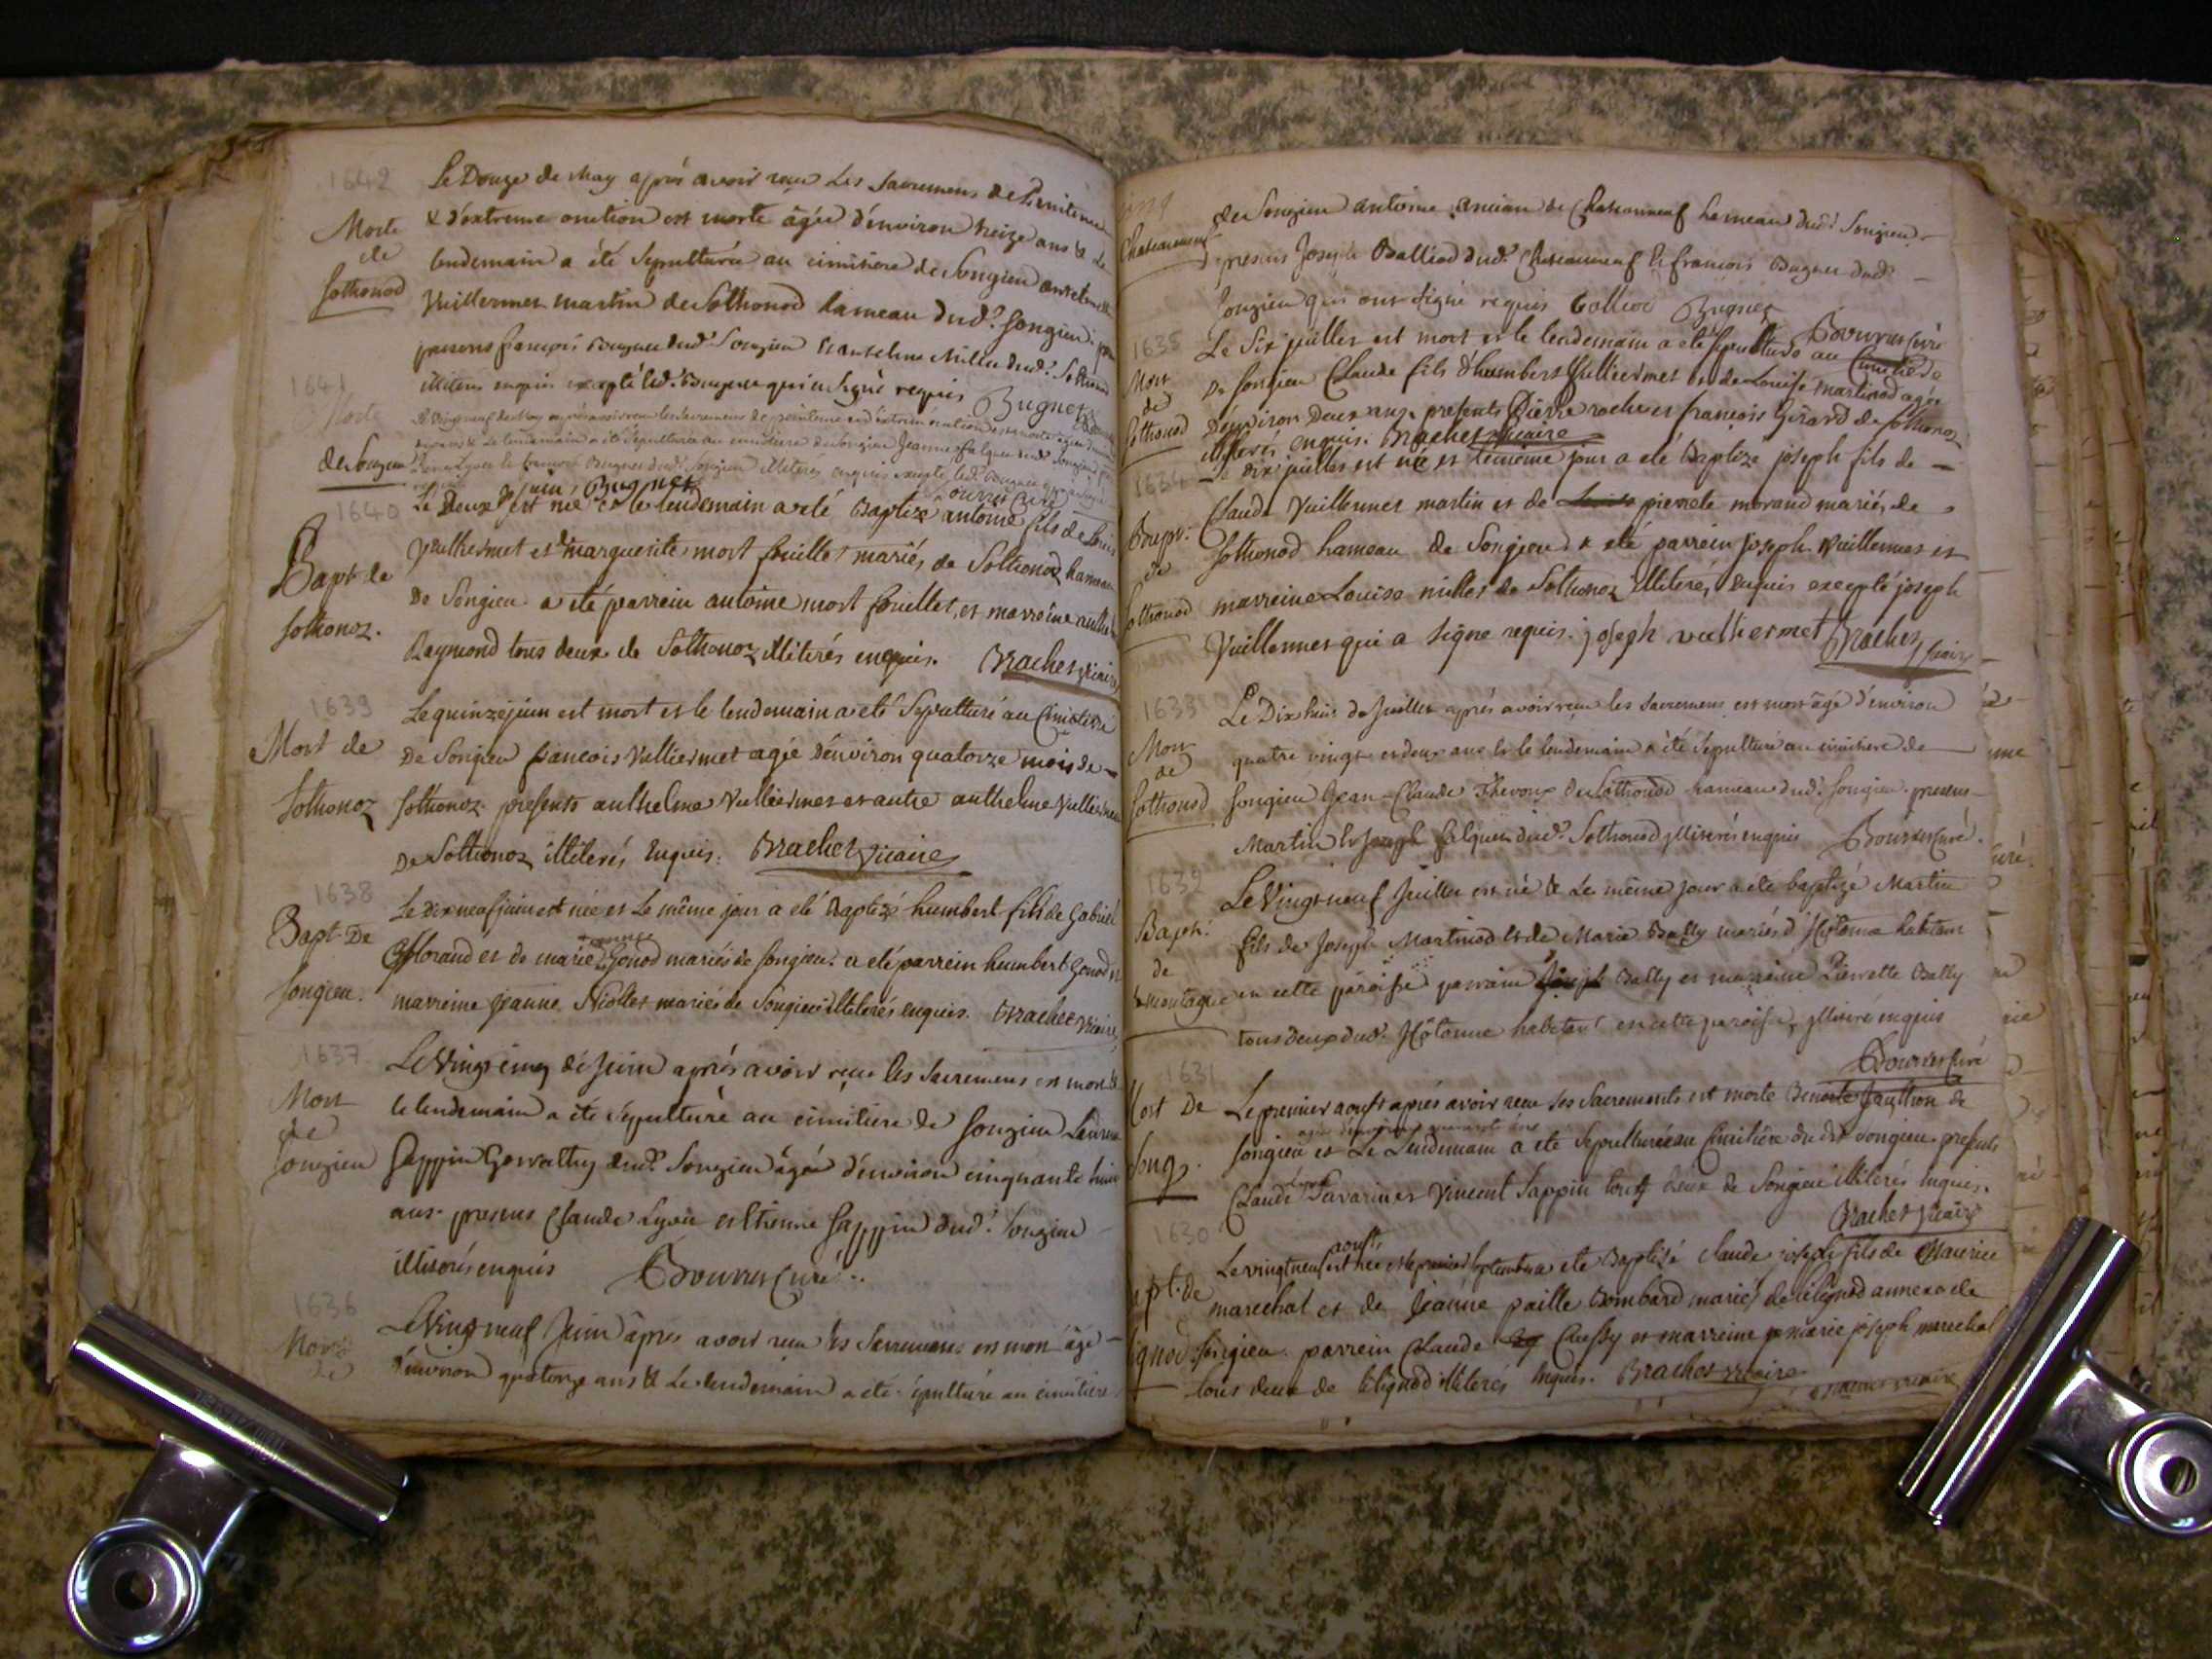 1642
Le Douze de May après avoir reçu Les Sacremens de Penitence
Morte de Sothonod
& d'extreme onction est morte âgée d'environ treize ans & Le
lendemain a été Sepulturée au cimitiere de Songieu
Vuillermet martin de Sothonod hameau dud.t Songieu
presens françois Bugnet dud.t Songieu & anthelme Millet dud.t Sothonod
illiteres enquis excepté led.t Bugnet qui a signé requis Bugnet
1641
Morte de Songieu
Le Vingt neuf de May après avoir reçu les sacremens de penitence et d'extreme onction est morte agée
ans & Le lendemain a été sepulturée au cimitiere de Songieu Jeanne falquet dud.t Songieu
françois Bugnet dud.t Songieu illiteres enquis excepté led.t Bugnet
Bugnet Bouvret Curé
1640
Bapt de Sothonoz.
Le Deux juin est né et le lendemain a été Baptizé antoine fils de Louis
Vulliermet et de marguerite mort fouillet mariés de Sothonoz hameau
De Songieu a été parrein antoine mort fouillet, et marreine
Raymond tous deux de Sothonoz illiterés enquis. Brachet vicaire
1639
Mort de Sothonoz
Le quinze juin est mort et le lendemain a été Sepulturé au Cimitiere
De Songieu francois Vulliermet agé d'environ quatorze mois de
Sothonoz. presents anthelme Vulliermet et autre anthelme Vulliermet
De Sothonoz illiterés enquis. Brachet vicaire
1638
Bapt. De Songieu.
Le dix neuf juin est née et Le même jour a été Baptizé humbert fils de Gabriel
Morand et de marie Gonod mariés de Songieu. a été parrein humbert Gonod et
marreine Jeanne Niollet mariés de Songieu illiterés enquis. Brachet vicaire
1637
Mort de Songieu
Le Vingt cinq de Juin après avoir reçu les Sacremens est mort &
le lendemain a été sepulturé au cimitiere de Songieu
Sappin Gervathy dud.t Songieu âgé d'environ cinquante huit
ans. presens Claude Lyvet et Etienne Sappin dud.t Songieu
illiterés enquis Bouvret Curé.
1636
Mort de
Le Vingt neuf Juin après avoir reçu les Sacremens est mort âgé
d'environ quatorze ans & Le lendemain a été sepulturé au cimitiere
Chateauneuf
de Songieu antoine Ancian de Chateauneuf hameau dud.t Songieu
presens Joseph Balliod dud.t Chateauneuf & françois Bugnet dud.t
Songieu qui ont signé requis Balliod Bugnet Bouvret Curé
1635
Mort de Sothonod
Le Six juillet est mort et le lendemain a été sepulturé au Cimetiere
De Songieu Claude fils d'humbert Vulliermet et de Louise martinod agé
D'environ Deux ans. presents Pierre rochet et françois Girard de Sothonoz
illiterés enquis. Brachet vicaire
1634
Bapt: de Sothonod
Le dix juillet est né et le meme jour a été Baptizé joseph fils de
Claude Vuillermet martin et de pierrete morand mariés de
Sothonod hameau de Songieu a été parrein joseph Vuillermet et
marreine Louise millet de Sothonoz illiterés enquis excepté joseph
Vuillermet qui a signe requis. joseph vuilliermet Brachet vicaire
1633
Mort de Sothonod
Le Dix huit de Juillet après avoir reçu les sacremens est mort âgé d'environ
quatre vingt et deux ans & le lendemain a été sepulturé au cimitiere de
Songieu Jean-Claude Thevoux de Sothonod hameau dud.t Songieu. presens
Martin & Joseph falquet dud.t Sothonod illiterés enquis Bouvret Curé.
1632
Bapt: de
Le Vingt neuf Juillet est né & Le même jour a été baptizé Martin
fils de Joseph Martinod & de Marie Bailly mariés d'Hotonne habitant
en cette paroisse parrain Joseph Bailly et marreine Pierrette Bailly
tous deux dud.t Hotonne habitant en cette paroisse, illiteré enquis
Bouvret Curé
1631
Mort De Song.
Le premier aoust après avoir reçu ses Sacrements est morte Benoite Jauthon de
agée d'environ quarante ans
Songieu et Le Lendemain a été Sepulturée au Cimitiere du dit Songieu presents
Claude Savarin et Vincent Sappin tous deux de Songieu illiterés enquis.
Brachet vicaire
1630
Le vingt neuf aoust est née et le premier septembre a été Baptizé claude joseph fils de Maurice
marechal et de Jeanne paille Bombard mariés de Lilignod annexe de
Songieu. parrein Claude Cuessy et marreine marie joseph marechal
tous deux de Lilignod illiterés enquis. Brachet vicaire